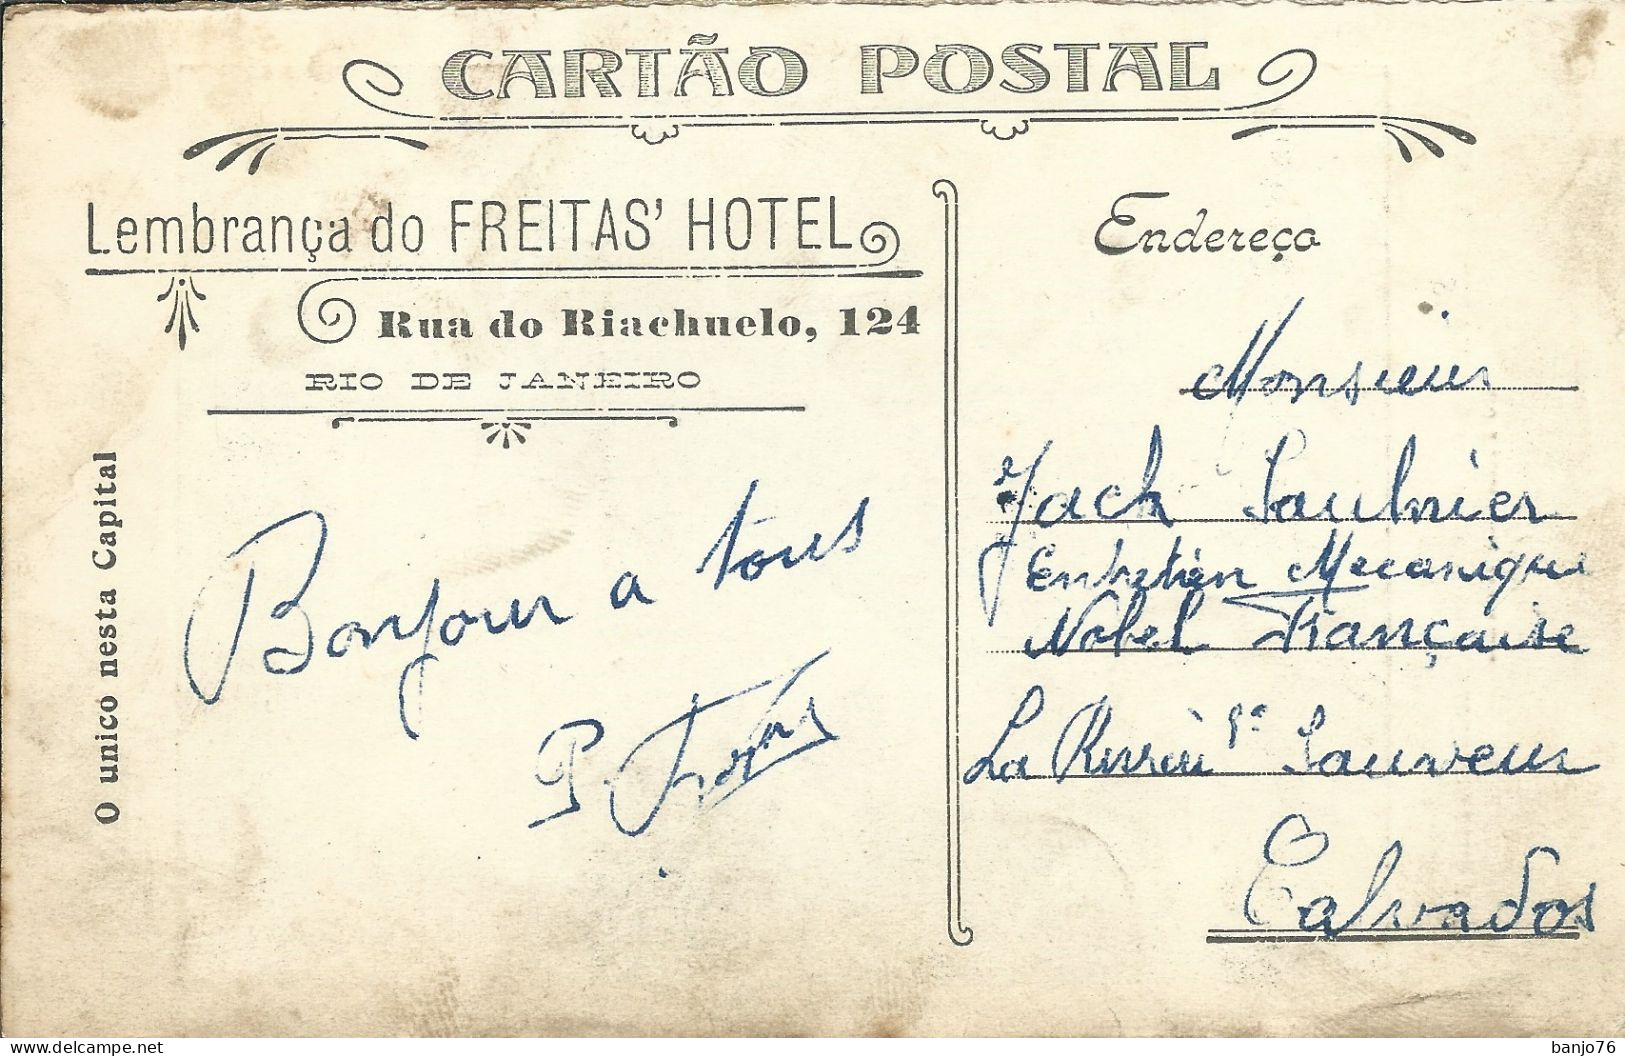 CARTÃO POSTAL
Lembrança do FREITAS' HOTEL
Rua do Riachuelo, 124
RIO DE JANEIRO
O unico nesta Capital
Bonjour a tous
P.
Endereço
Monsieur
Jack Saulnier
Entretien Mecanique
Nobel Française
La Rivière St Sauveur
Calvados
banjo76